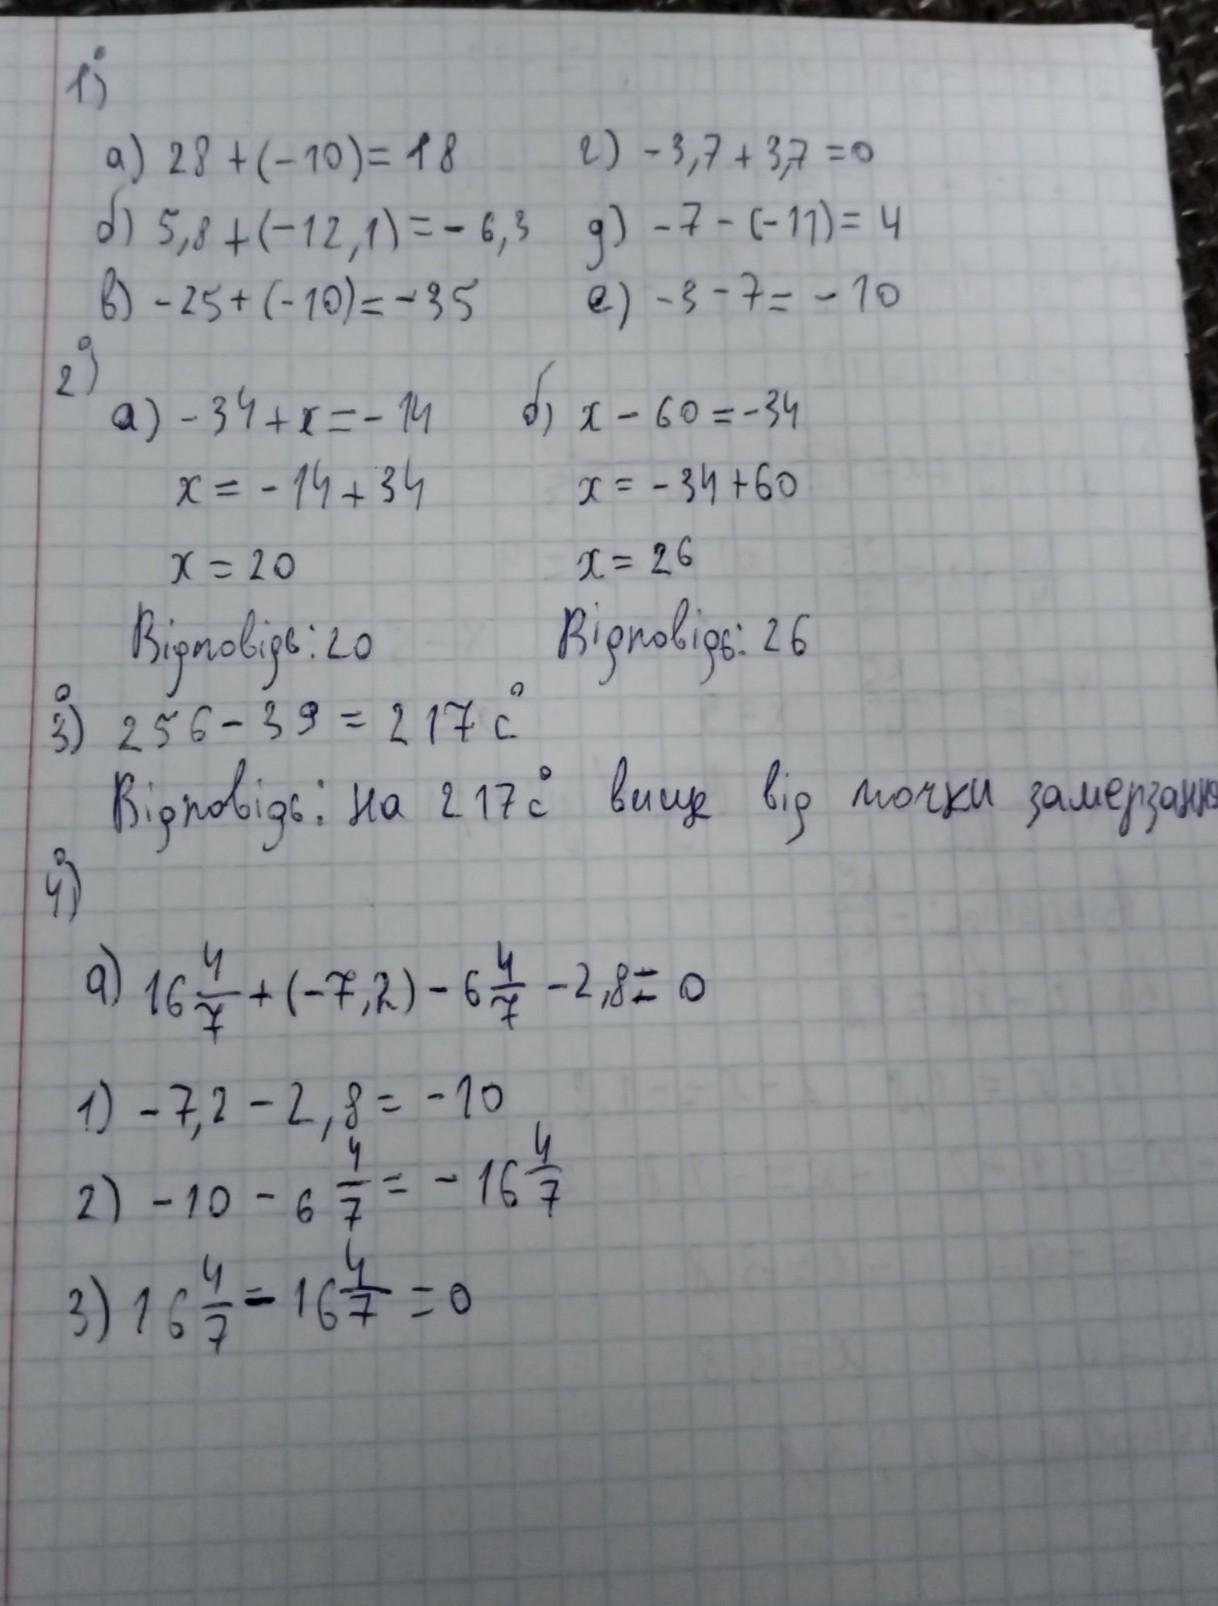 1)
а) 28 + (-10) = 18 г) -3,7 + 3,7 = 0
б) 5,8 + (-12,1) = -6,3 д) -7 - (-11) = 4
в) -25 + (-10) = -35 е) -3 - 7 = -10
2)
а) -34 + x = -14 б) x - 60 = -34
x = -14 + 34 x = -34 + 60
x = 20 x = 26
Відповідь: 20 Відповідь: 26
3) 256 - 39 = 217 c°
Відповідь: на 217 c° вище від точки замерзання
4)
а) 16 4/7 + (-7,2) - 6 4/7 - 2,8 = 0
1) -7,2 - 2,8 = -10
2) -10 - 6 4/7 = -16 4/7
3) 16 4/7 - 16 4/7 = 0